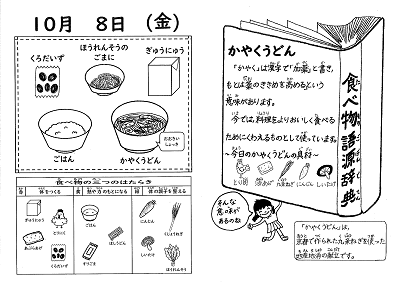 10月 8日 (金)
くろだいず
ほうれんそうの
ごまに
ぎゅうにゅう
ごはん
かやくうどん
おおきい
しょっき
食べ物の三つのはたらき
赤 体をつくる
黄 熱や力のもとになる
緑 体の調子を整える
ぎゅうにゅう
とりにく
あぶらあげ
くろだいず
こめ
ほしうどん
さとう
ごま
にんじん
くじょうねぎ
しいたけ
ほうれんそう
食べ物語源辞典
かやくうどん
「かやく」は漢字で「加薬」と書き、
もとは薬のききめを高めるという
意味があります。
今では、料理をよりおいしく食べる
ためにくわえるものとして使っています。
~今日のかやくうどんの具材~
とり肉
油あげ
九条ねぎ
にんじん
しいたけ
そんな
意味が
あるのね
「かやくうどん」は、
京都で作られた九条ねぎを使った
地産地消の献立です。